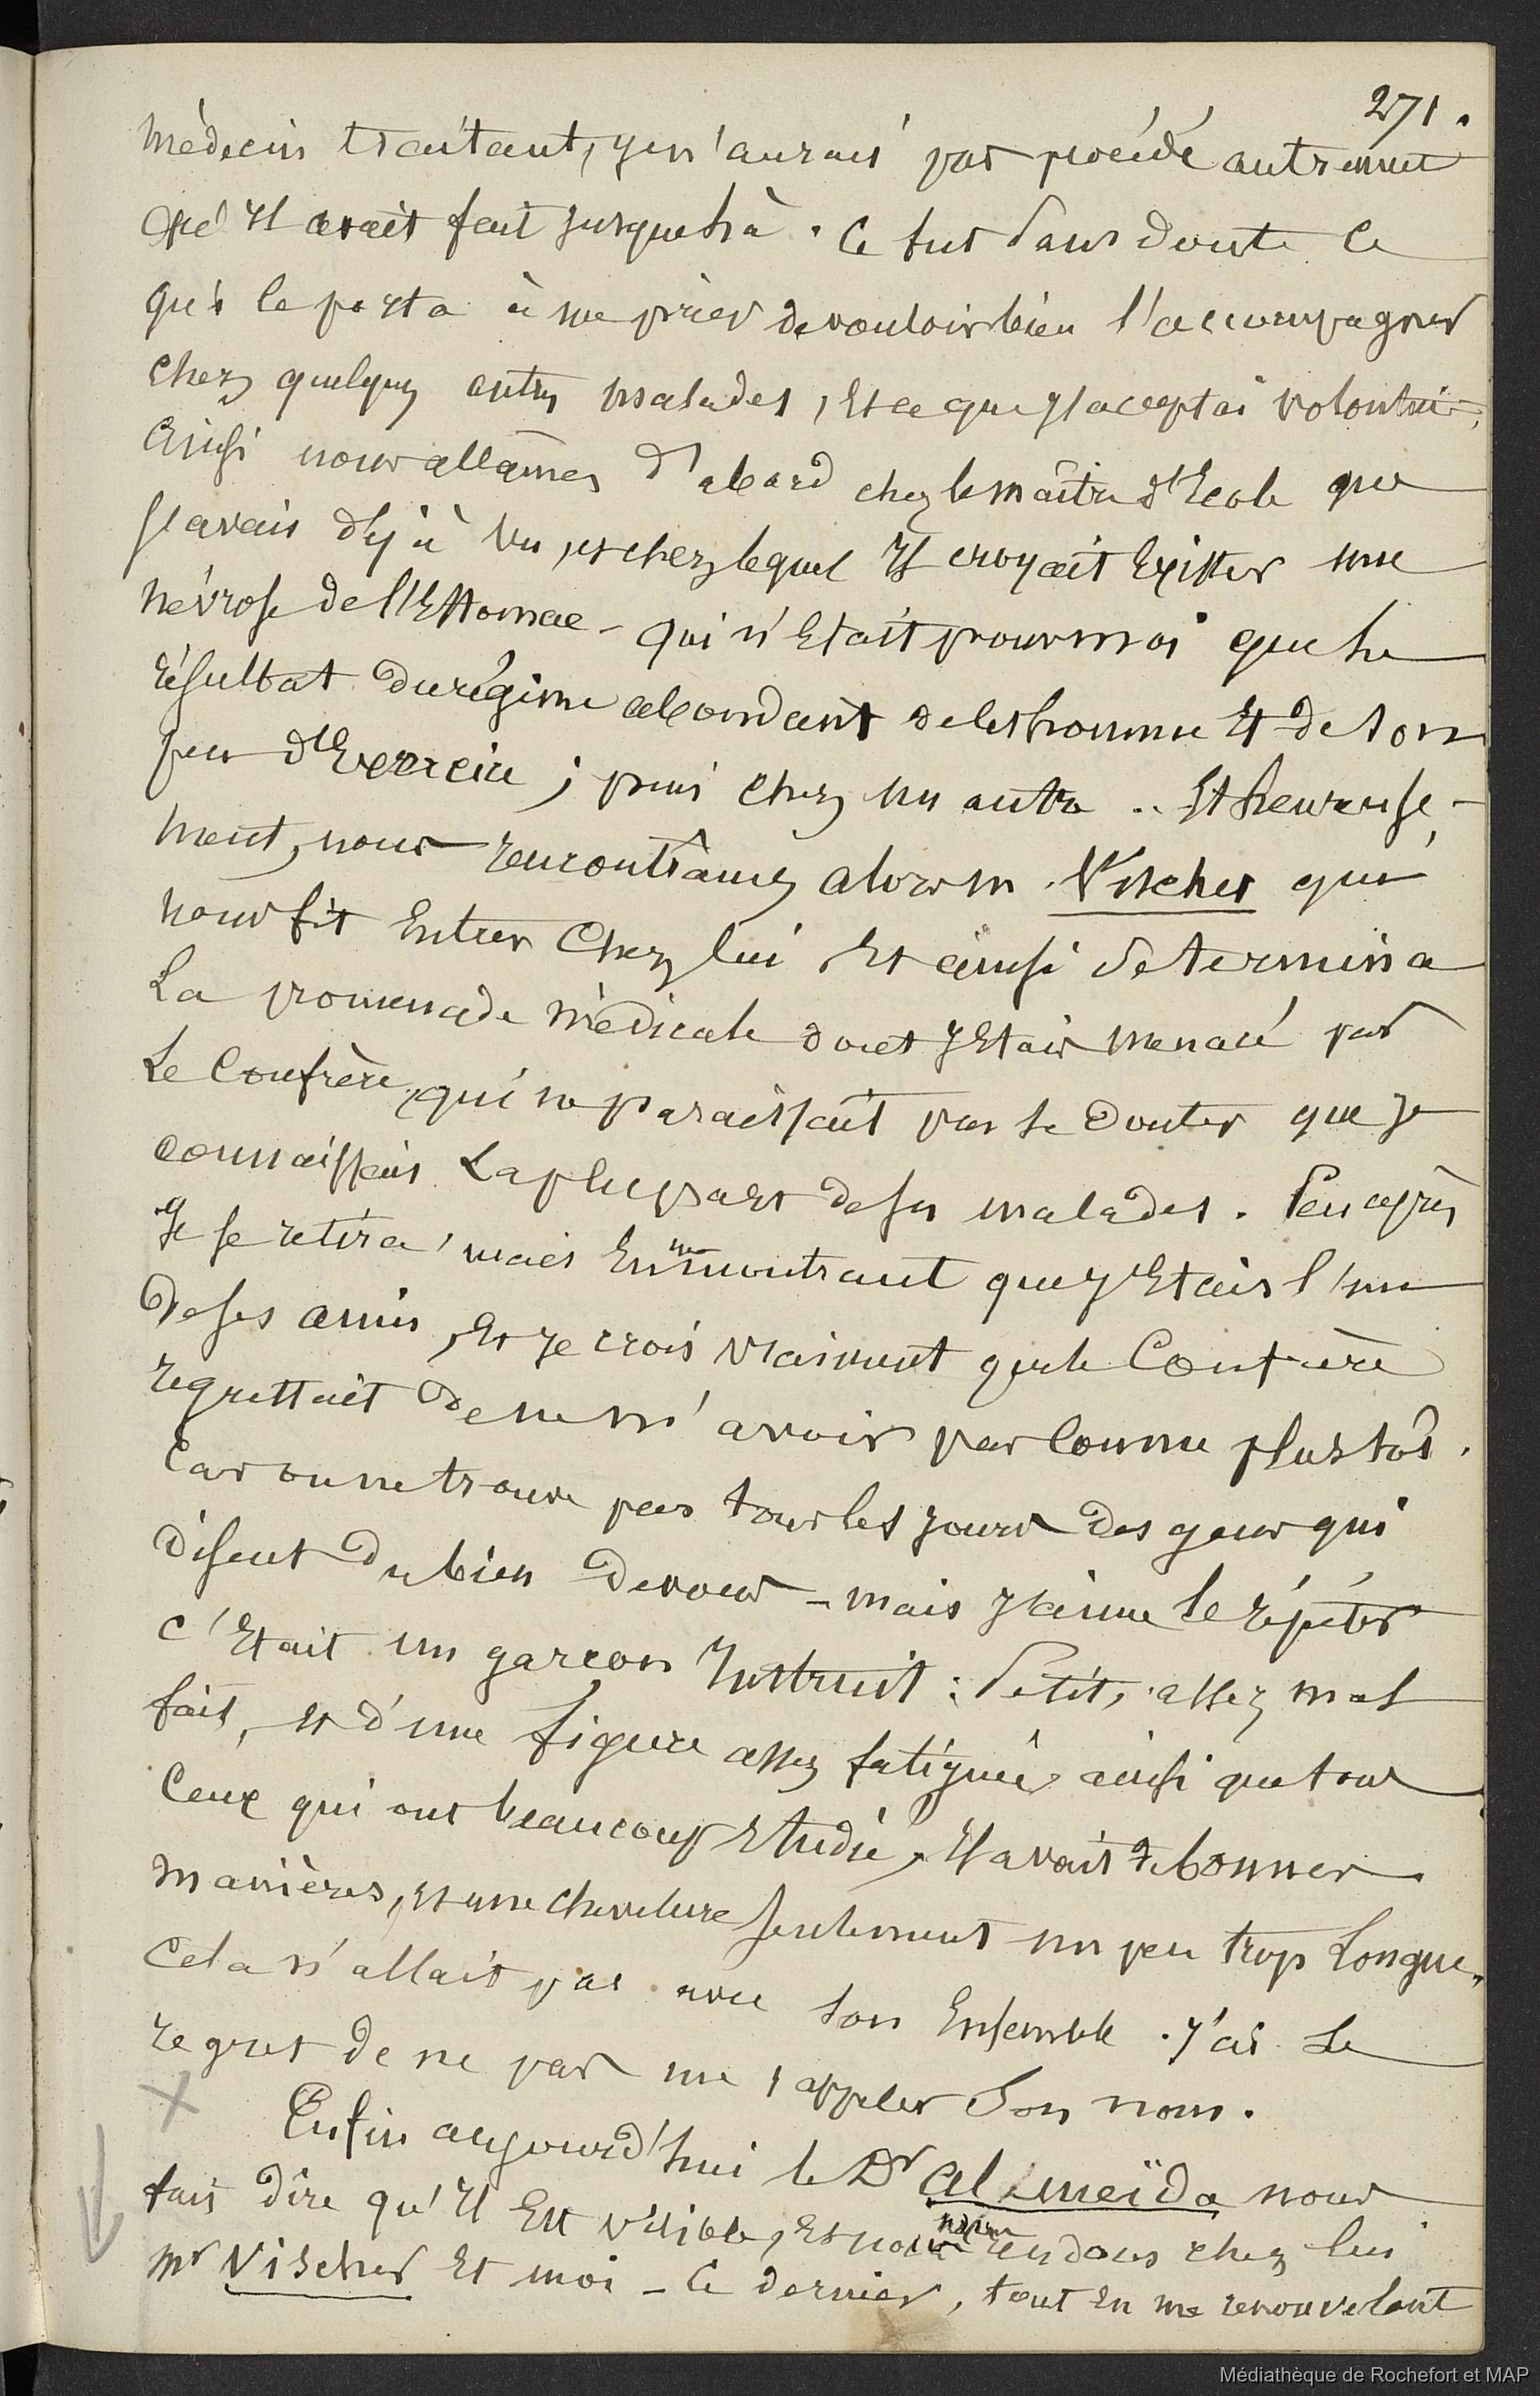 271.
médecin traitant, je n'aurais pas procédé autrement
qu'il avait fait jusque là. Ce fut sans doute ce
qui le porta à me prier de vouloir bien l'accompagner
chez quelques autres malades, Et ce que j'acceptai volontiers,
ainsi nous allâmes d'abord chez le maître d'Ecole que
j'avais déjà vu, et chez lequel Il croyait Exister une
névrose de l'Estomac - qui n'Etait pour moi que le
résultat du régime abondant de les homme Et de son
peu d'Exercice ; puis chez un autre .. Et heureuse-
ment, nous rencontrâmes alors m. Vischer qui
nous fit Entrer Chez lui Et ainsi se termina
La promenade médicale dont j'Etais menacé par
Le Confrère, qui ne paraissait pas se Douter que je
connaissais La plupart de ses malades. Peu après
Il se retira, mais En me montrant que j'Etais l'un
De ses amis, Et je crois vraiment que le Confrère
regrettait De ne m'avoir pas connu plus tôt.
Car on ne trouve pas tous les jours des gens qui
Disent du bien De vous - mais j'aime le répéter
c'Etait un garcon Instruit : Petit, assez mal
fait, Et d'une figure assez fatiguée, ainsi que tous
Ceux qui ont beaucoup Etudié, Il avait de bonnes
manières, Et une chevelure seulement un peu trop Longue,
Cela n'allait pas avec son Ensemble. J'ai Le
regret de ne pas me rappeler Son nom.
Enfin aujourd'hui le Dr Almeïda nous
fait dire qu'Il Est visible, Et nous nous rendons chez lui
Mr Vischer Et moi - Ce dernier, tout En me renouvelant
Médiathèque de Rochefort et MAP